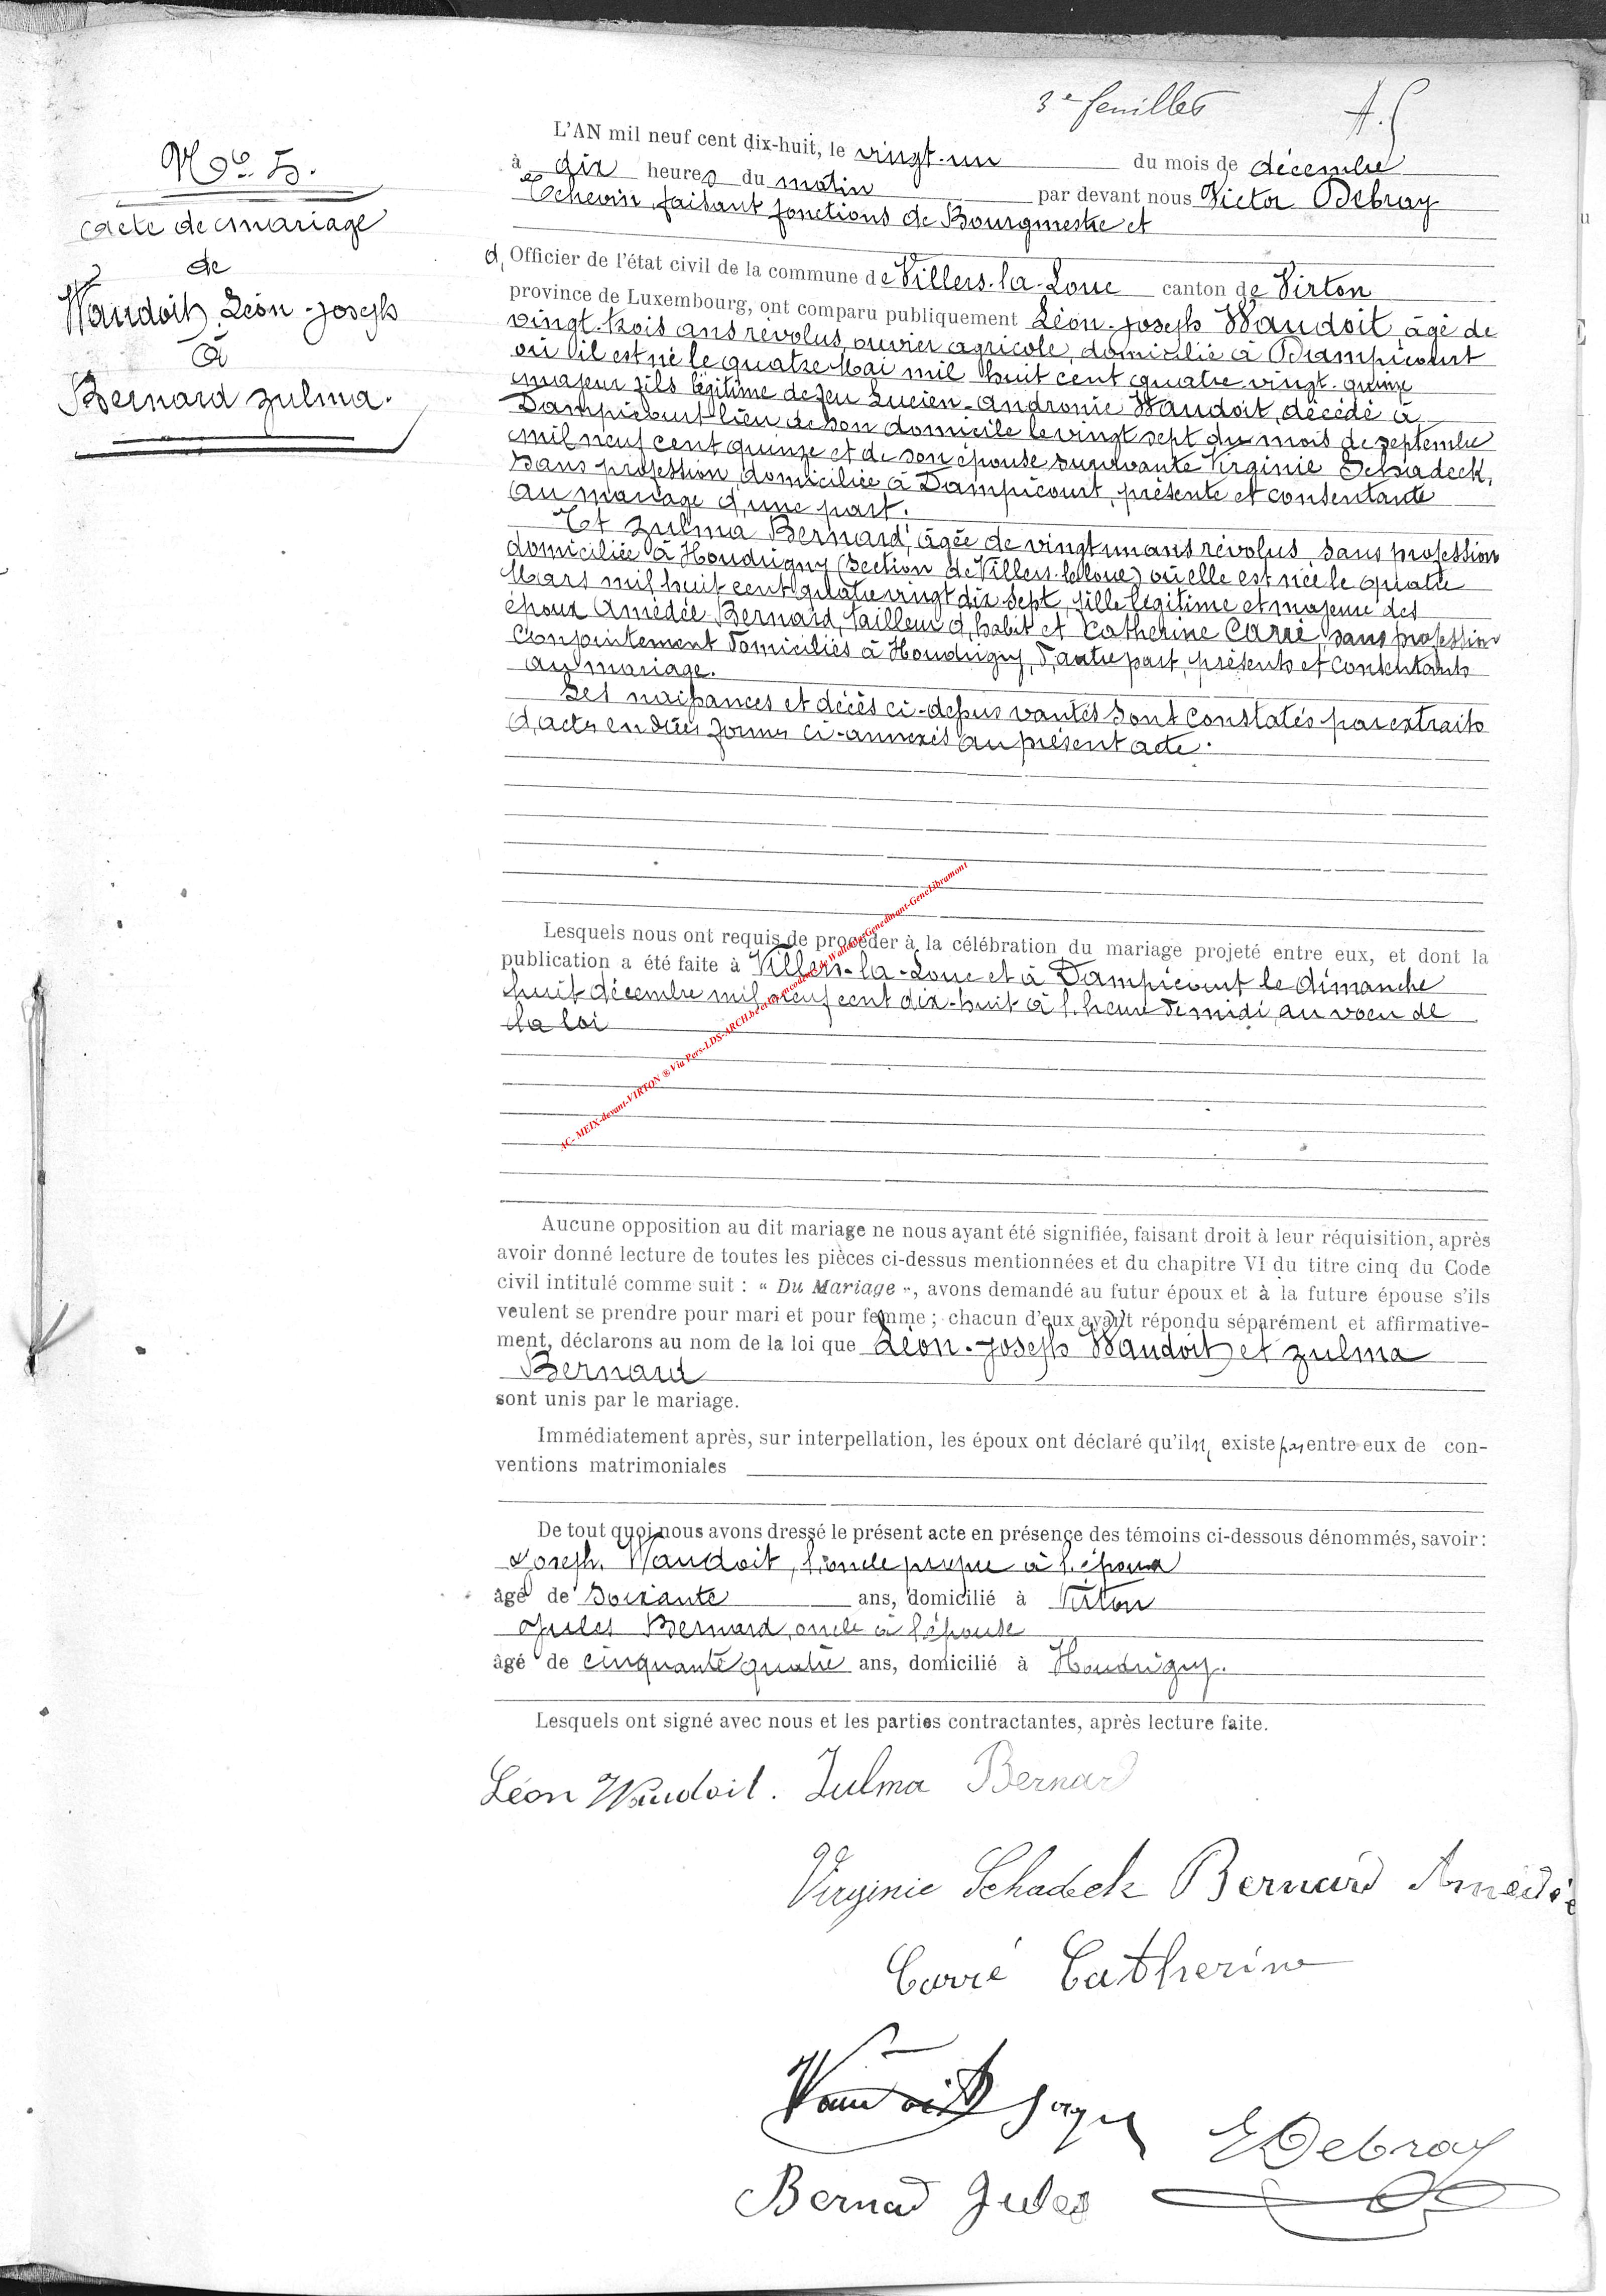 3e feuillet
N° 5.
Acte de Mariage
de
Waudoit, Léon-Joseph
à
Bernard Zulma.
L'AN mil neuf cent dix-huit, le vingt-un du mois de décembre
à dix heures du matin par devant nous Victor Debray
Echevin faisant fonctions de Bourgmestre et
d, Officier de l'état civil de la commune de Villers-la-Loue canton de Virton
province de Luxembourg, ont comparu publiquement Léon-Joseph Waudoit, âgé de
vingt-trois ans révolus, ouvrier agricole, domicilié à Dampicourt
où il est né le quatre Mai mil huit cent quatre vingt-quinze
majeur fils légitime de feu Lucien-Andronic Waudoit, décédé à
Dampicourt lieu de son domicile le vingt sept du mois de septembre
mil neuf cent quinze et de son épouse survivante Virginie Schadeck,
sans profession, domiciliée à Dampicourt, présente et consentante
au mariage d'une part.
Et Zulma Bernard, âgée de vingt un ans révolus sans profession
domiciliée à Houdrigny (Section de Villers-la-loue) où elle est née le quatre
Mars mil huit cent quatre vingt dix sept, fille légitime et majeure des
époux Amédée Bernard, tailleur d'habit et Catherine Carré, sans profession
conjointement domiciliés à Houdrigny, d'autre part, présents et consentants
au mariage.
Les naissances et décès ci-dessus vantés sont constatés par extraits
d'acte en dues formes ci-annexés au présent acte.
Lesquels nous ont requis de procéder à la célébration du mariage projeté entre eux, et dont la
publication a été faite à Villers-la-Loue et à Dampicourt le dimanche
huit décembre mil neuf cent dix-huit à l'heure de midi, au voeu de
la loi
Aucune opposition au dit mariage ne nous ayant été signifiée, faisant droit à leur réquisition, après
avoir donné lecture de toutes les pièces ci-dessus mentionnées et du chapitre VI du titre cinq du Code
civil intitulé comme suit : « Du Mariage », avons demandé au futur époux et à la future épouse s'ils
veulent se prendre pour mari et pour femme ; chacun d'eux ayant répondu séparément et affirmative-
ment, déclarons au nom de la loi que Léon-Joseph Waudoit et Zulma
Bernard
sont unis par le mariage.
Immédiatement après, sur interpellation, les époux ont déclaré qu'il n, existe pas entre eux de con-
ventions matrimoniales
De tout quoi nous avons dressé le présent acte en présence des témoins ci-dessous dénommés, savoir :
Joseph Waudoit, l'oncle propre à l'époux
âgé de soixante ans, domicilié à Virton
Jules Bernard, oncle à l'épouse
âgé de cinquante quatre ans, domicilié à Houdrigny.
Lesquels ont signé avec nous et les parties contractantes, après lecture faite.
Léon Waudoit. Zulma Bernard
Virginie Schadeck Bernard Amédée
Carré Catherine
Waudoit
Debray
Bernard Jules